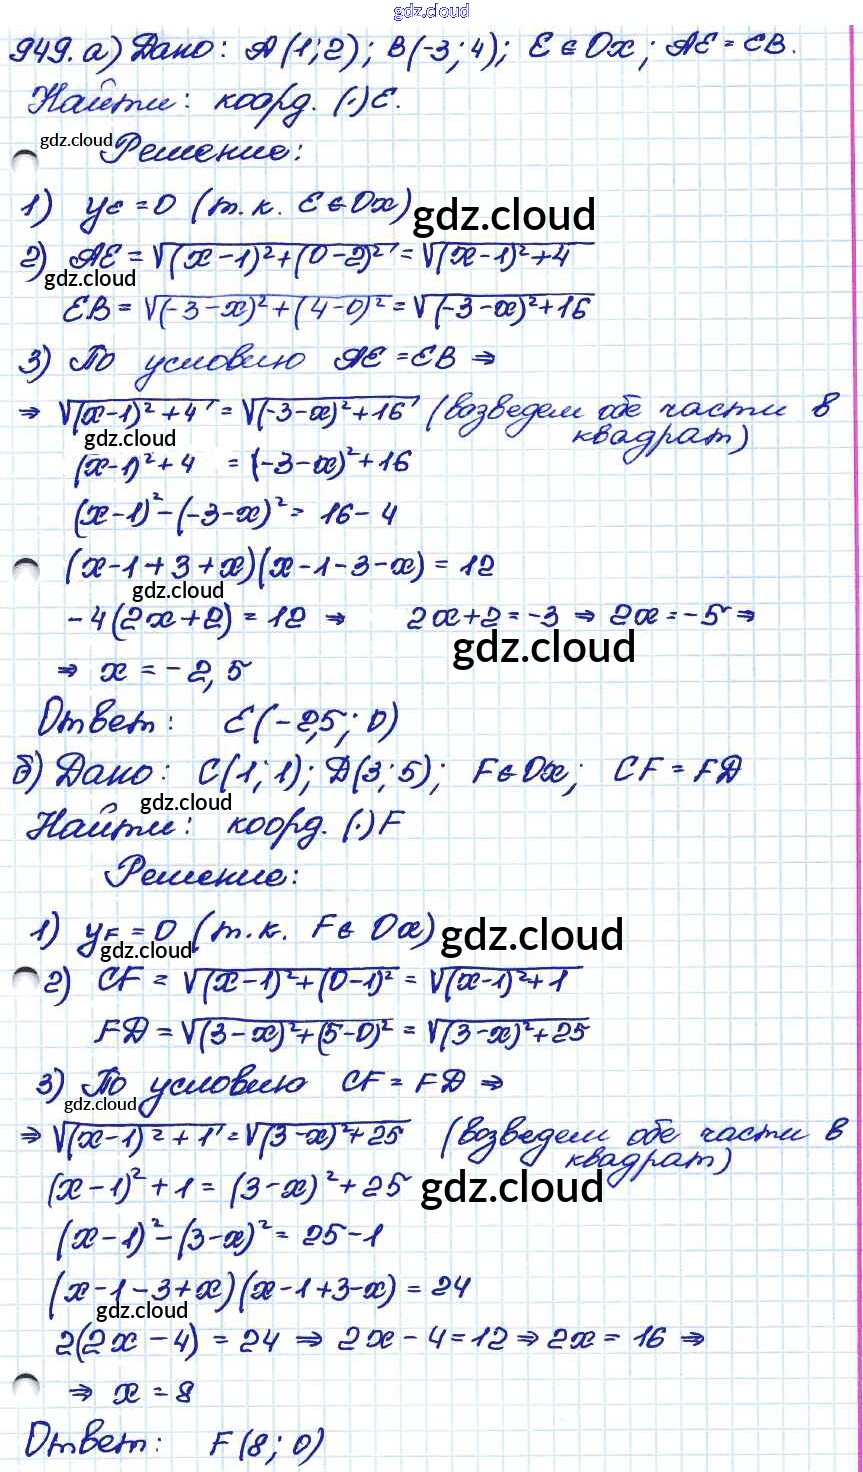 gdz.cloud
949. а) Дано: A(1;2); B(-3;4); E∈Ox; AE=EB.
Найти: коорд. (·)E.
gdz.cloud
Решение:
1) yₑ=0 (т.к. E∈Ox)
gdz.cloud
2) AE=√(x-1)²+(0-2)²=√(x-1)²+4
gdz.cloud
EB=√(-3-x)²+(4-0)²=√(-3-x)²+16
3) По условию AE=EB ⇒
⇒ √(x-1)²+4=√(-3-x)²+16 (возведем обе части в
gdz.cloud
квадрат)
(x-1)²+4 =(-3-x)²+16
(x-1)²-(-3-x)²= 16-4
(x-1+3+x)(x-1-3-x)=12
gdz.cloud
-4(2x+2)=12 ⇒ 2x+2=-3 ⇒ 2x=-5 ⇒
gdz.cloud
⇒ x=-2,5
Ответ: E(-2,5; 0)
б) Дано: C(1;1); D(3;5); F∈Ox; CF=FD
gdz.cloud
Найти: коорд. (·)F
Решение:
1) y_F=0 (т.к. F∈ Ox)
gdz.cloud
gdz.cloud
2) CF=√(x-1)²+(0-1)²=√(x-1)²+1
FD=√(3-x)²+(5-0)²=√(3-x)²+25
3) По условию CF=FD ⇒
gdz.cloud
⇒ √(x-1)²+1=√(3-x)²+25 (возведем обе части в
квадрат)
(x-1)²+1=(3-x)²+25
gdz.cloud
(x-1)²-(3-x)²=25-1
(x-1-3+x)(x-1+3-x)=24
gdz.cloud
2(2x-4)=24 ⇒ 2x-4=12 ⇒ 2x=16 ⇒
⇒ x=8
Ответ: F(8; 0)